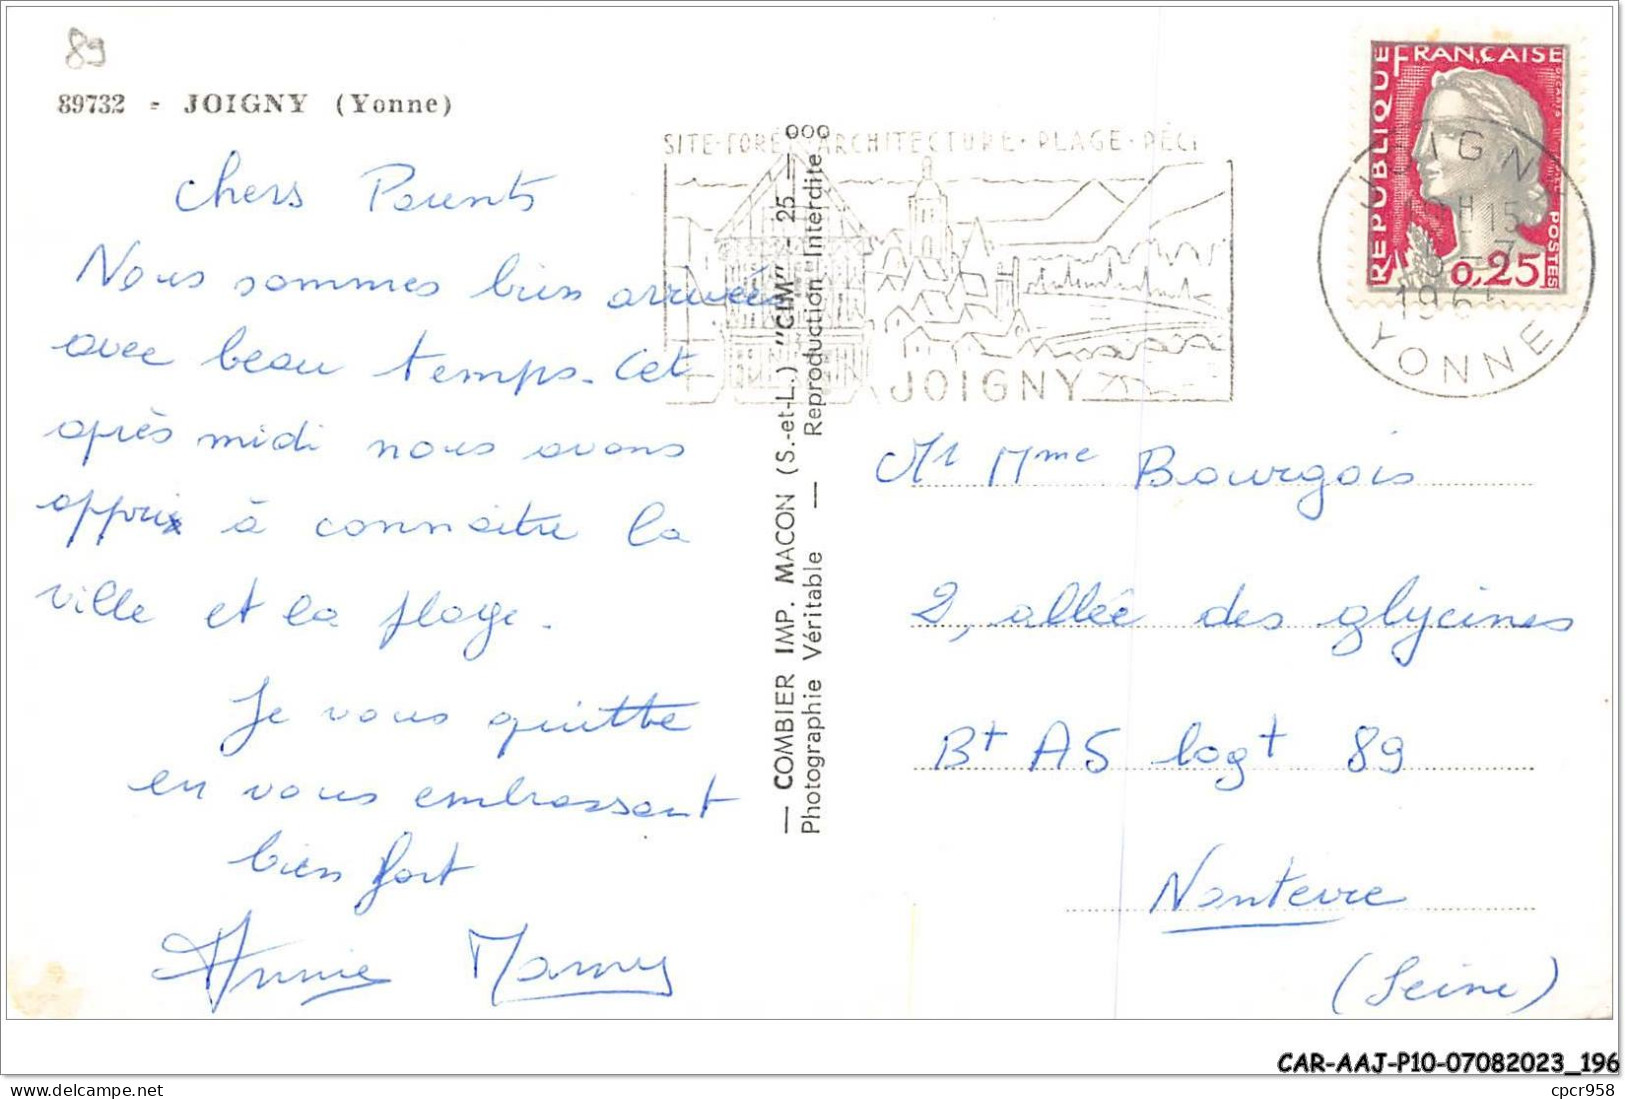 89
89732 - JOIGNY (Yonne)
Chers Parents
Nous sommes bien arrivées
avec beau temps. Cet
après midi nous avons
appris à connaitre la
ville et la plage.
Je vous quitte
en vous embrassant
bien fort
Annie
— COMBIER IMP. MACON (S.-et-L.) "CIM" - 25 —
Photographie Véritable — Reproduction Interdite
000
SITE-FORÊT-ARCHITECTURE-PLAGE-
JOIGNY
REPUBLIQUE FRANÇAISE
POSTES
0,25
JOIGNY
YONNE
Mr Mme Bourgois
2, allée des glycines
Bt A5 logt 89
Nanterre
(Seine)
CAR-AAJ-P10-07082023_196
www.delcampe.net
cpcr958